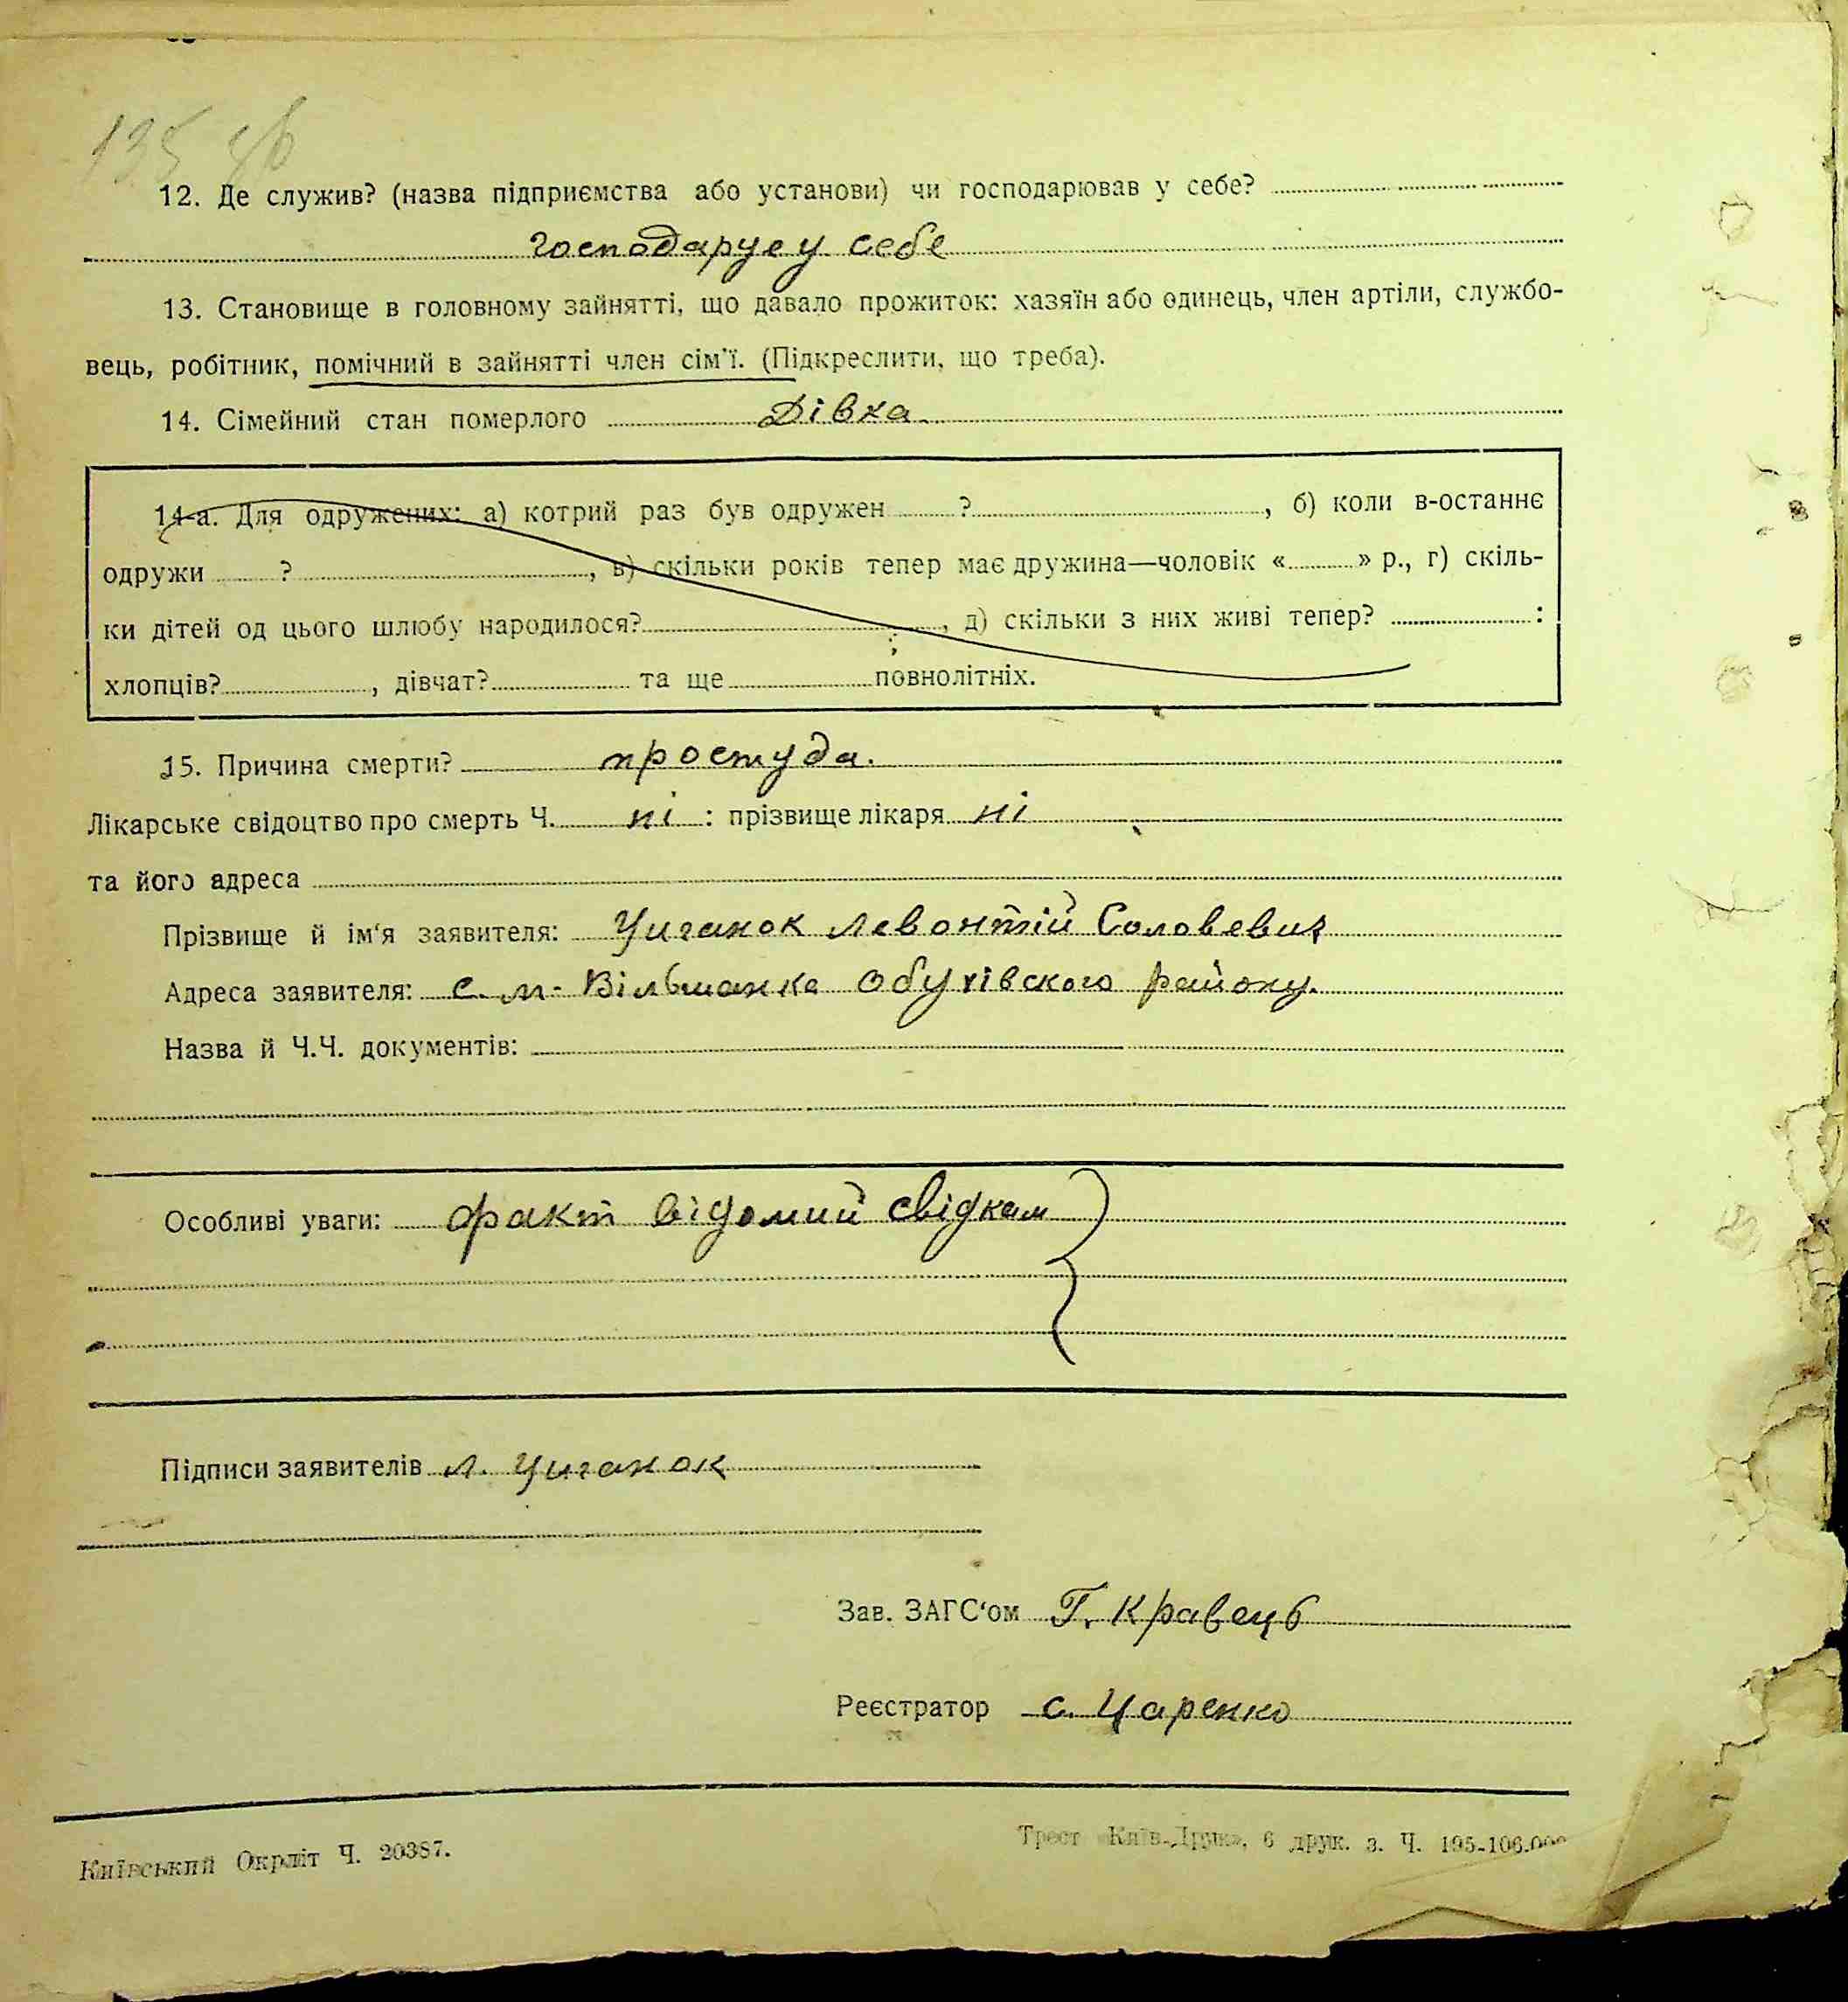 135 зв
12. Де служив? (назва підприємства або установи) чи господарював у себе?
господарує у себе
13. Становище в головному зайнятті, що давало прожиток: хазяїн або одинець, член артіли, службо-
вець, робітник, помічний в зайнятті член сім'ї. (Підкреслити, що треба).
14. Сімейний стан померлого Дівка
14-а. Для одружених: а) котрий раз був одружен ?, б) коли в-останнє
одружи ?, в) скільки років тепер має дружина—чоловік « » р., г) скіль-
ки дітей од цього шлюбу народилося?, д) скільки з них живі тепер? :
хлопців?, дівчат? та ще повнолітніх.
15. Причина смерти? простуда.
Лікарське свідоцтво про смерть Ч. ні : прізвище лікаря ні
та його адреса
Прізвище й ім'я заявителя: Циганок Левонтій Соловевич
Адреса заявителя: с. м-Вільшанка Обухівского району.
Назва й Ч.Ч. документів:
Особливі уваги: факт відомий свідкам
Підписи заявителів Л. Циганок
Зав. ЗАГС'ом Г. Кравець
Реєстратор С. Царенко
Київський Окрліт Ч. 20387.
Трест «Київ-Друк», 6 друк. з. Ч. 195-106.000